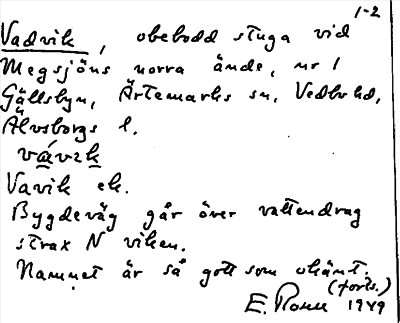 1-2
Vadvik, obebodd stuga vid
Megsjöns norra ände, nr 1
Gällsbyn, Ärtemarks sn, Vedbo hd,
Älvsborgs l.
Vavik ek.
Bygdeväg går över vattendrag
strax N viken.
Namnet är så gott som okänt.
(forts.)
E. Rosell 1949